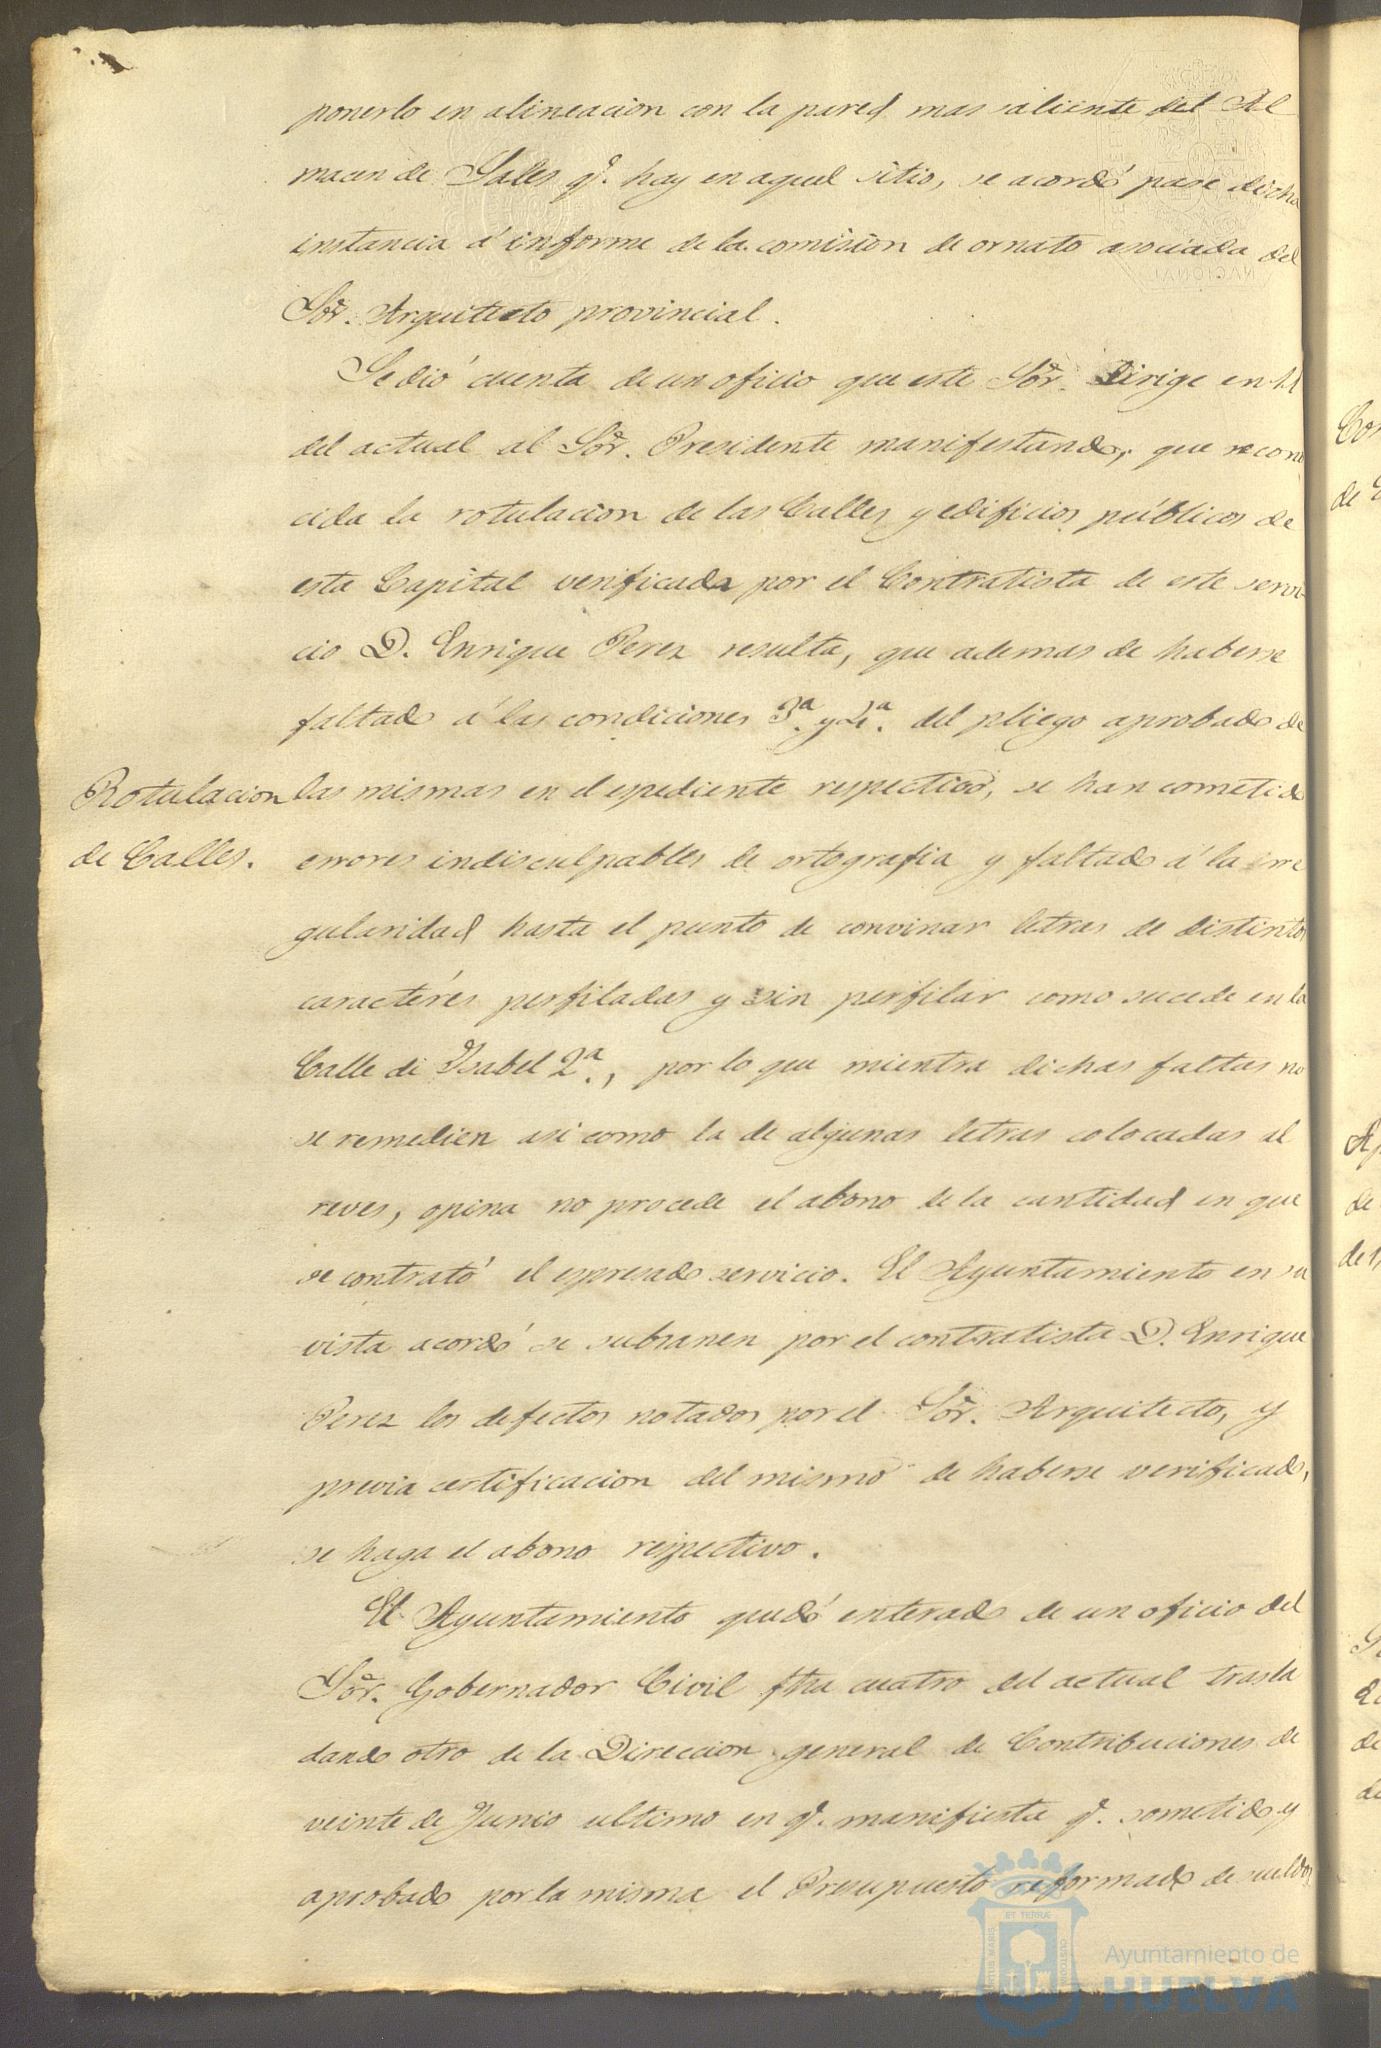 ponerlo en alineacion con la pared mas saliente del Al
macen de Sales q.e hay en aquel sitio, se acordó pase dicha
instancia á informe de la comision de ornato asociada del
Sõr. Arquitecto provincial.
Se dió cuenta de un oficio que este Sõr. Dirige en 11
del actual al Sõr. Presidente manifestando, que recono
cida la rotulacion de las Calles y edificios públicos de
esta Capital verificada por el Contratista de este servi
cio D. Enrique Perez resulta, que ademas de haberse
faltado á las condiciones 3ª y 4ª del pliego aprobado de
Rotulacion
de Calles.
las mismas en el espediente respectivo, se han cometido
errores indisculpables de ortografia y faltado á la irre
gularidad hasta el punto de convinar letras de distintos
caractéres perfiladas y sin perfilar como sucede en la
Calle de Ysabel 2ª, por lo que mientra dichas faltas no
se remedien asi como la de algunas letras colocadas al
reves, opina no procede el abono de la cantidad en que
se contrató el espresado servicio. El Ayuntamiento en su
vista acordó se subsanen por el contratista D. Enrique
Perez los defectos notados por el Sõr. Arquitecto, y
previa certificacion del mismo de haberse verificado,
se haga el abono respectivo.
El Ayuntamiento quedó enterado de un oficio del
Sõr. Gobernador Civil fha cuatro del actual trasla
dando otro de la Direccion general de Contribuciones de
veinte de Junio ultimo en q.e manifiesta q.e sometido y
aprobado por la misma el Presupuesto reformado de sueldos
Ayuntamiento de
HUELVA